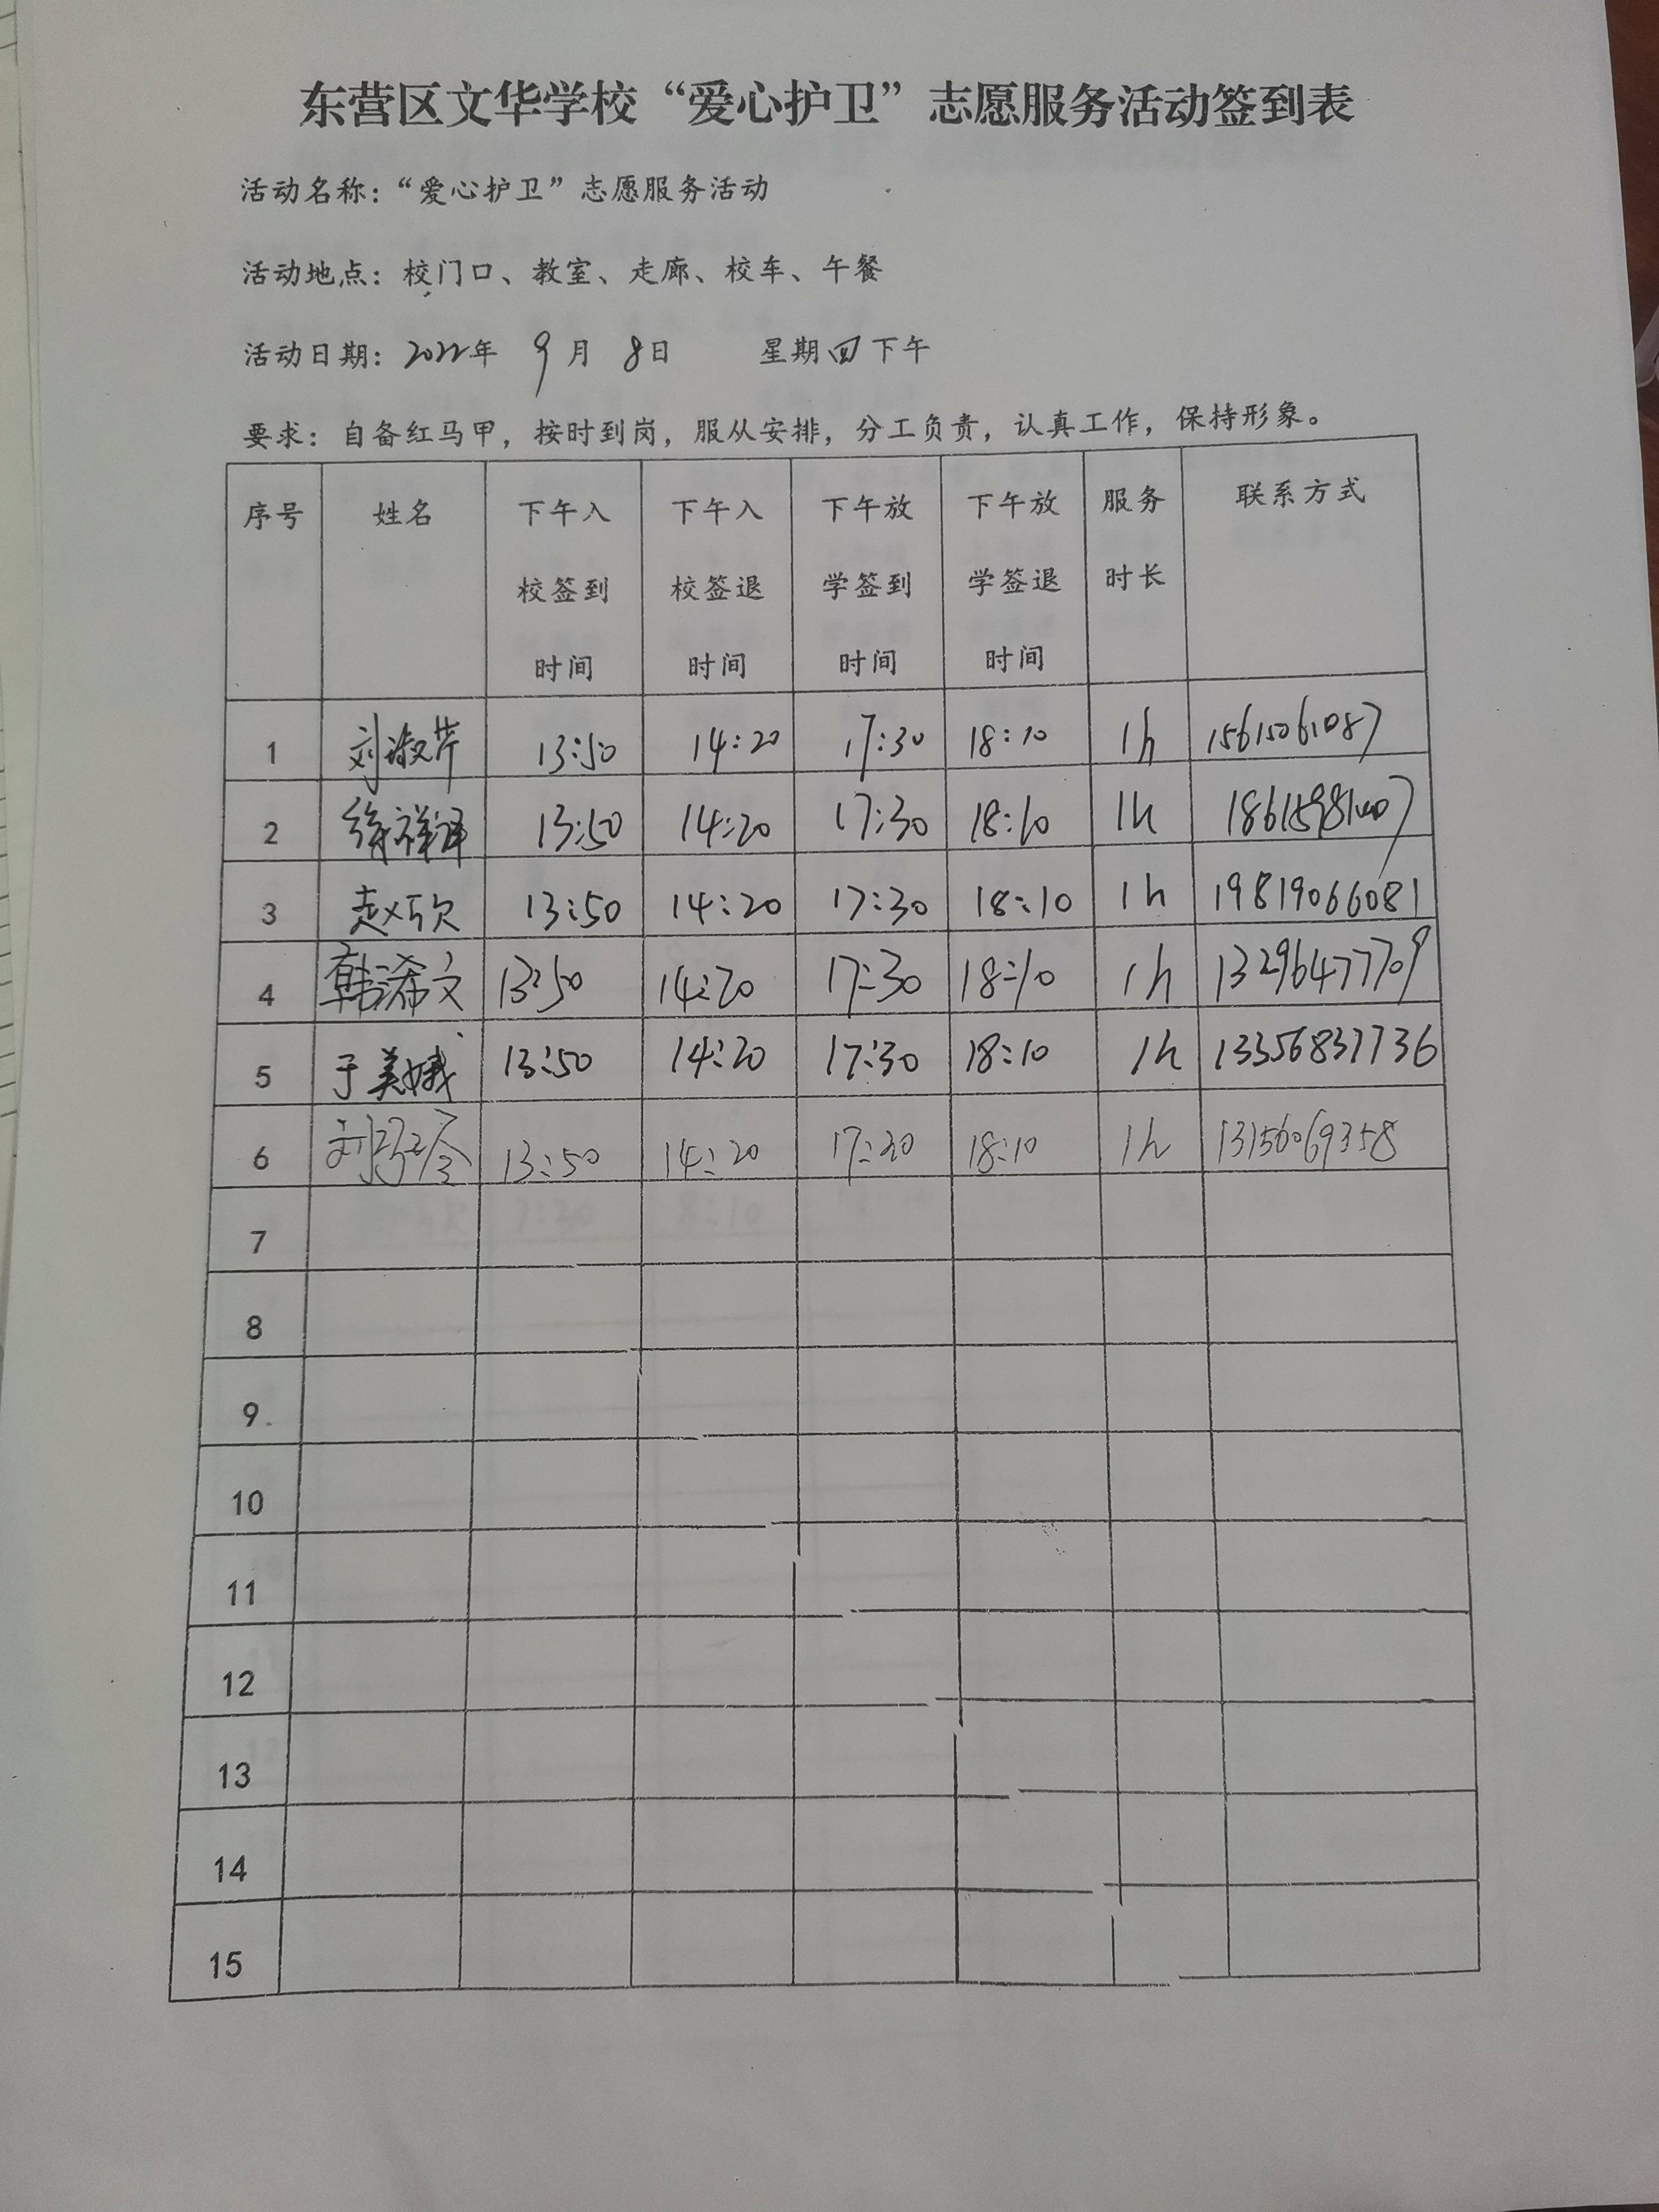 东营区文华学校“爱心护卫”志愿服务活动签到表
活动名称：“爱心护卫”志愿服务活动
活动地点：校门口、教室、走廊、校车、午餐
活动日期：2022年 9月 8日 星期四下午
要求：自备红马甲，按时到岗，服从安排，分工负责，认真工作，保持形象。
序号 姓名 下午入校签到时间 下午入校签退时间 下午放学签到时间 下午放学签退时间 服务时长 联系方式
1 刘淑芹 13:50 14:20 17:30 18:10 1h 15615061087
2 徐祥译 13:50 14:20 17:30 18:10 1h
3 赵巧欣 13:50 14:20 17:30 18:10 1h 19819066081
4 韩浠文 13:50 14:20 17:30 18:10 1h 13296477709
5 于美娥 13:50 14:20 17:30 18:10 1h 13356837736
6 13:50 14:20 17:30 18:10 1h 13156069358
7
8
9
10
11
12
13
14
15